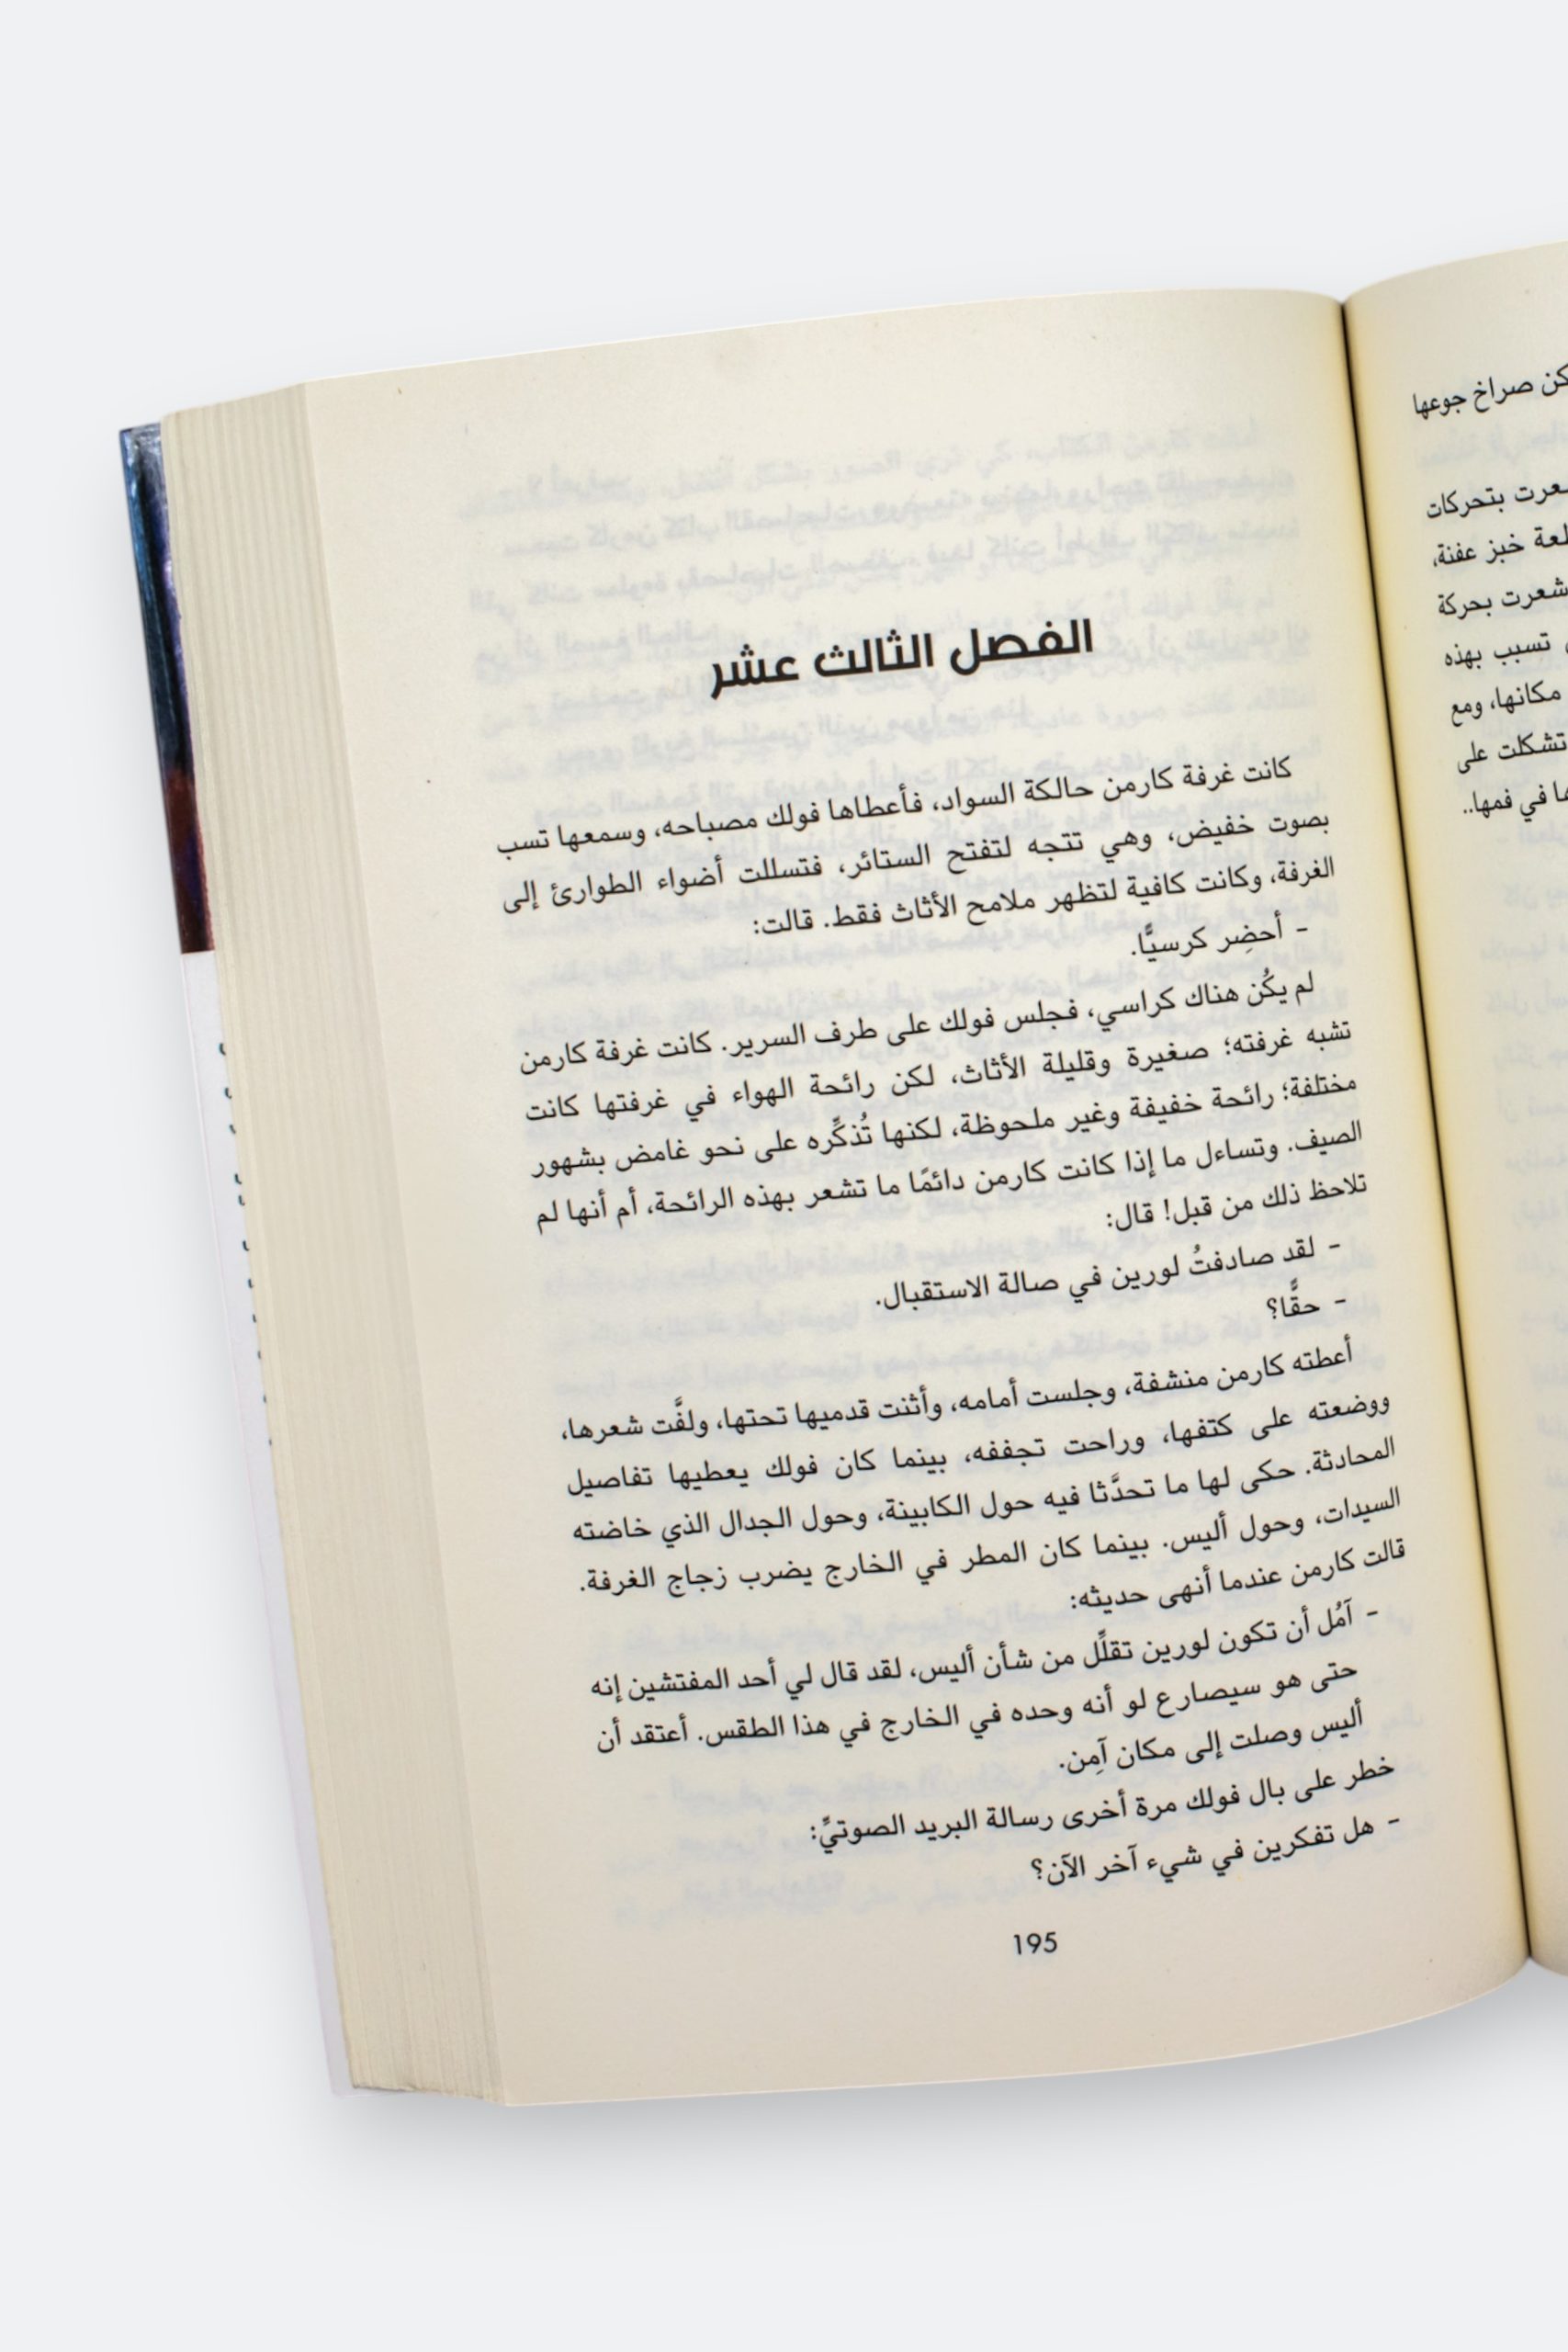 كن صراخ جوعها
بتحركات
خبز عفنة،
شعرت بحركة
تسبب بهذه
مكانها، ومع
تشكلت على
في فمها..
الفصل الثالث عشر
كانت غرفة كارمن حالكة السواد، فأعطاها فولك مصباحه، وسمعها تسب
بصوت خفيض، وهي تتجه لتفتح الستائر، فتسللت أضواء الطوارئ إلى
الغرفة، وكانت كافية لتظهر ملامح الأثاث فقط. قالت:
- أحضِر كرسيًّا.
لم يكُن هناك كراسي، فجلس فولك على طرف السرير. كانت غرفة كارمن
تشبه غرفته؛ صغيرة وقليلة الأثاث، لكن رائحة الهواء في غرفتها كانت
مختلفة؛ رائحة خفيفة وغير ملحوظة، لكنها تُذكِّره على نحو غامض بشهور
الصيف. وتساءل ما إذا كانت كارمن دائمًا ما تشعر بهذه الرائحة، أم أنها لم
تلاحظ ذلك من قبل! قال:
- لقد صادفتُ لورين في صالة الاستقبال.
- حقًّا؟
أعطته كارمن منشفة، وجلست أمامه، وأثنت قدميها تحتها، ولفَّت شعرها،
ووضعته على كتفها، وراحت تجففه، بينما كان فولك يعطيها تفاصيل
المحادثة. حكى لها ما تحدَّثا فيه حول الكابينة، وحول الجدال الذي خاضته
السيدات، وحول أليس. بينما كان المطر في الخارج يضرب زجاج الغرفة.
قالت كارمن عندما أنهى حديثه:
- آمُل أن تكون لورين تقلِّل من شأن أليس، لقد قال لي أحد المفتشين إنه
حتى هو سيصارع لو أنه وحده في الخارج في هذا الطقس. أعتقد أن
أليس وصلت إلى مكان آمِن.
خطر على بال فولك مرة أخرى رسالة البريد الصوتيِّ:
- هل تفكرين في شيء آخر الآن؟
195